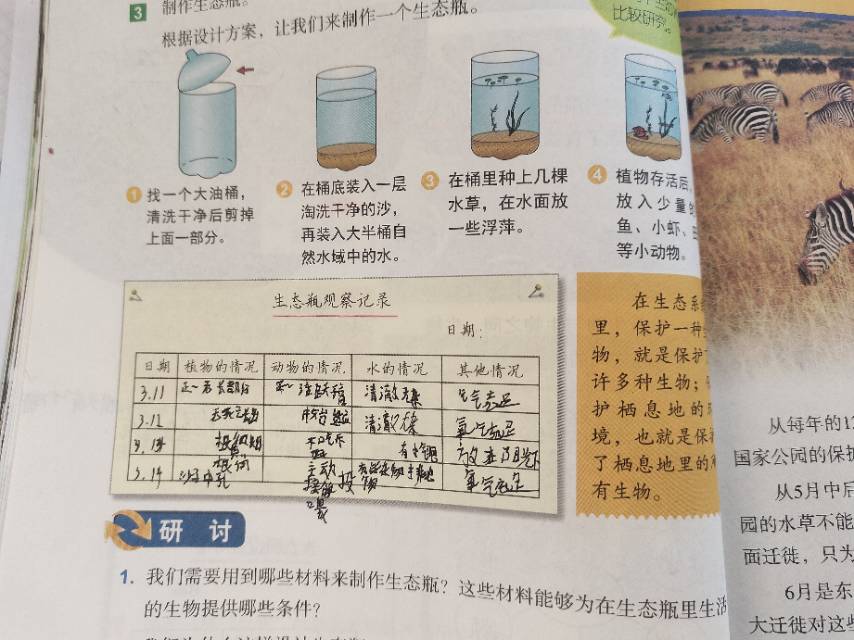 3 制作生态瓶。
根据设计方案，让我们来制作一个生态瓶。
比较研究。
1 找一个大油桶，
清洗干净后剪掉
上面一部分。
2 在桶底装入一层
淘洗干净的沙，
再装入大半桶自
然水域中的水。
3 在桶里种上几棵
水草，在水面放
一些浮萍。
4 植物存活后，
放入少量的
鱼、小虾、
等小动物。
生态瓶观察记录
日期：
日期 植物的情况 动物的情况 水的情况 其他情况
3.11 清澈 氧气充足
3.12 清澈 氧气充足
3.13 放在阳光下
3.14 主动 氧气充足
在生态系
里，保护一种
物，就是保护
许多种生物；
护栖息地的
境，也就是保
了栖息地里的
有生物。
研讨
1. 我们需要用到哪些材料来制作生态瓶？这些材料能够为在生态瓶里生活
的生物提供哪些条件？
从每年的12
国家公园的保护
从5月中后
园的水草不能
面迁徙，只为
6月是东
大迁徙对这些